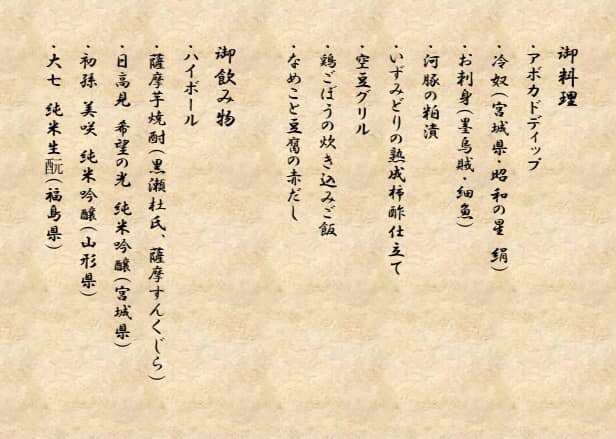 御料理
・アボカドディップ
・冷奴(宮城県・昭和の星 絹)
・お刺身(墨烏賊・細魚)
・河豚の粕漬
・いずみどりの熟成柿酢仕立て
・空豆グリル
・鶏ごぼうの炊き込みご飯
・なめこと豆腐の赤だし
御飲み物
・ハイボール
・薩摩芋焼酎(黒瀬杜氏、薩摩すんくじら)
・日高見 希望の光 純米吟醸(宮城県)
・初孫 美咲 純米吟醸(山形県)
・大七 純米生酛(福島県)